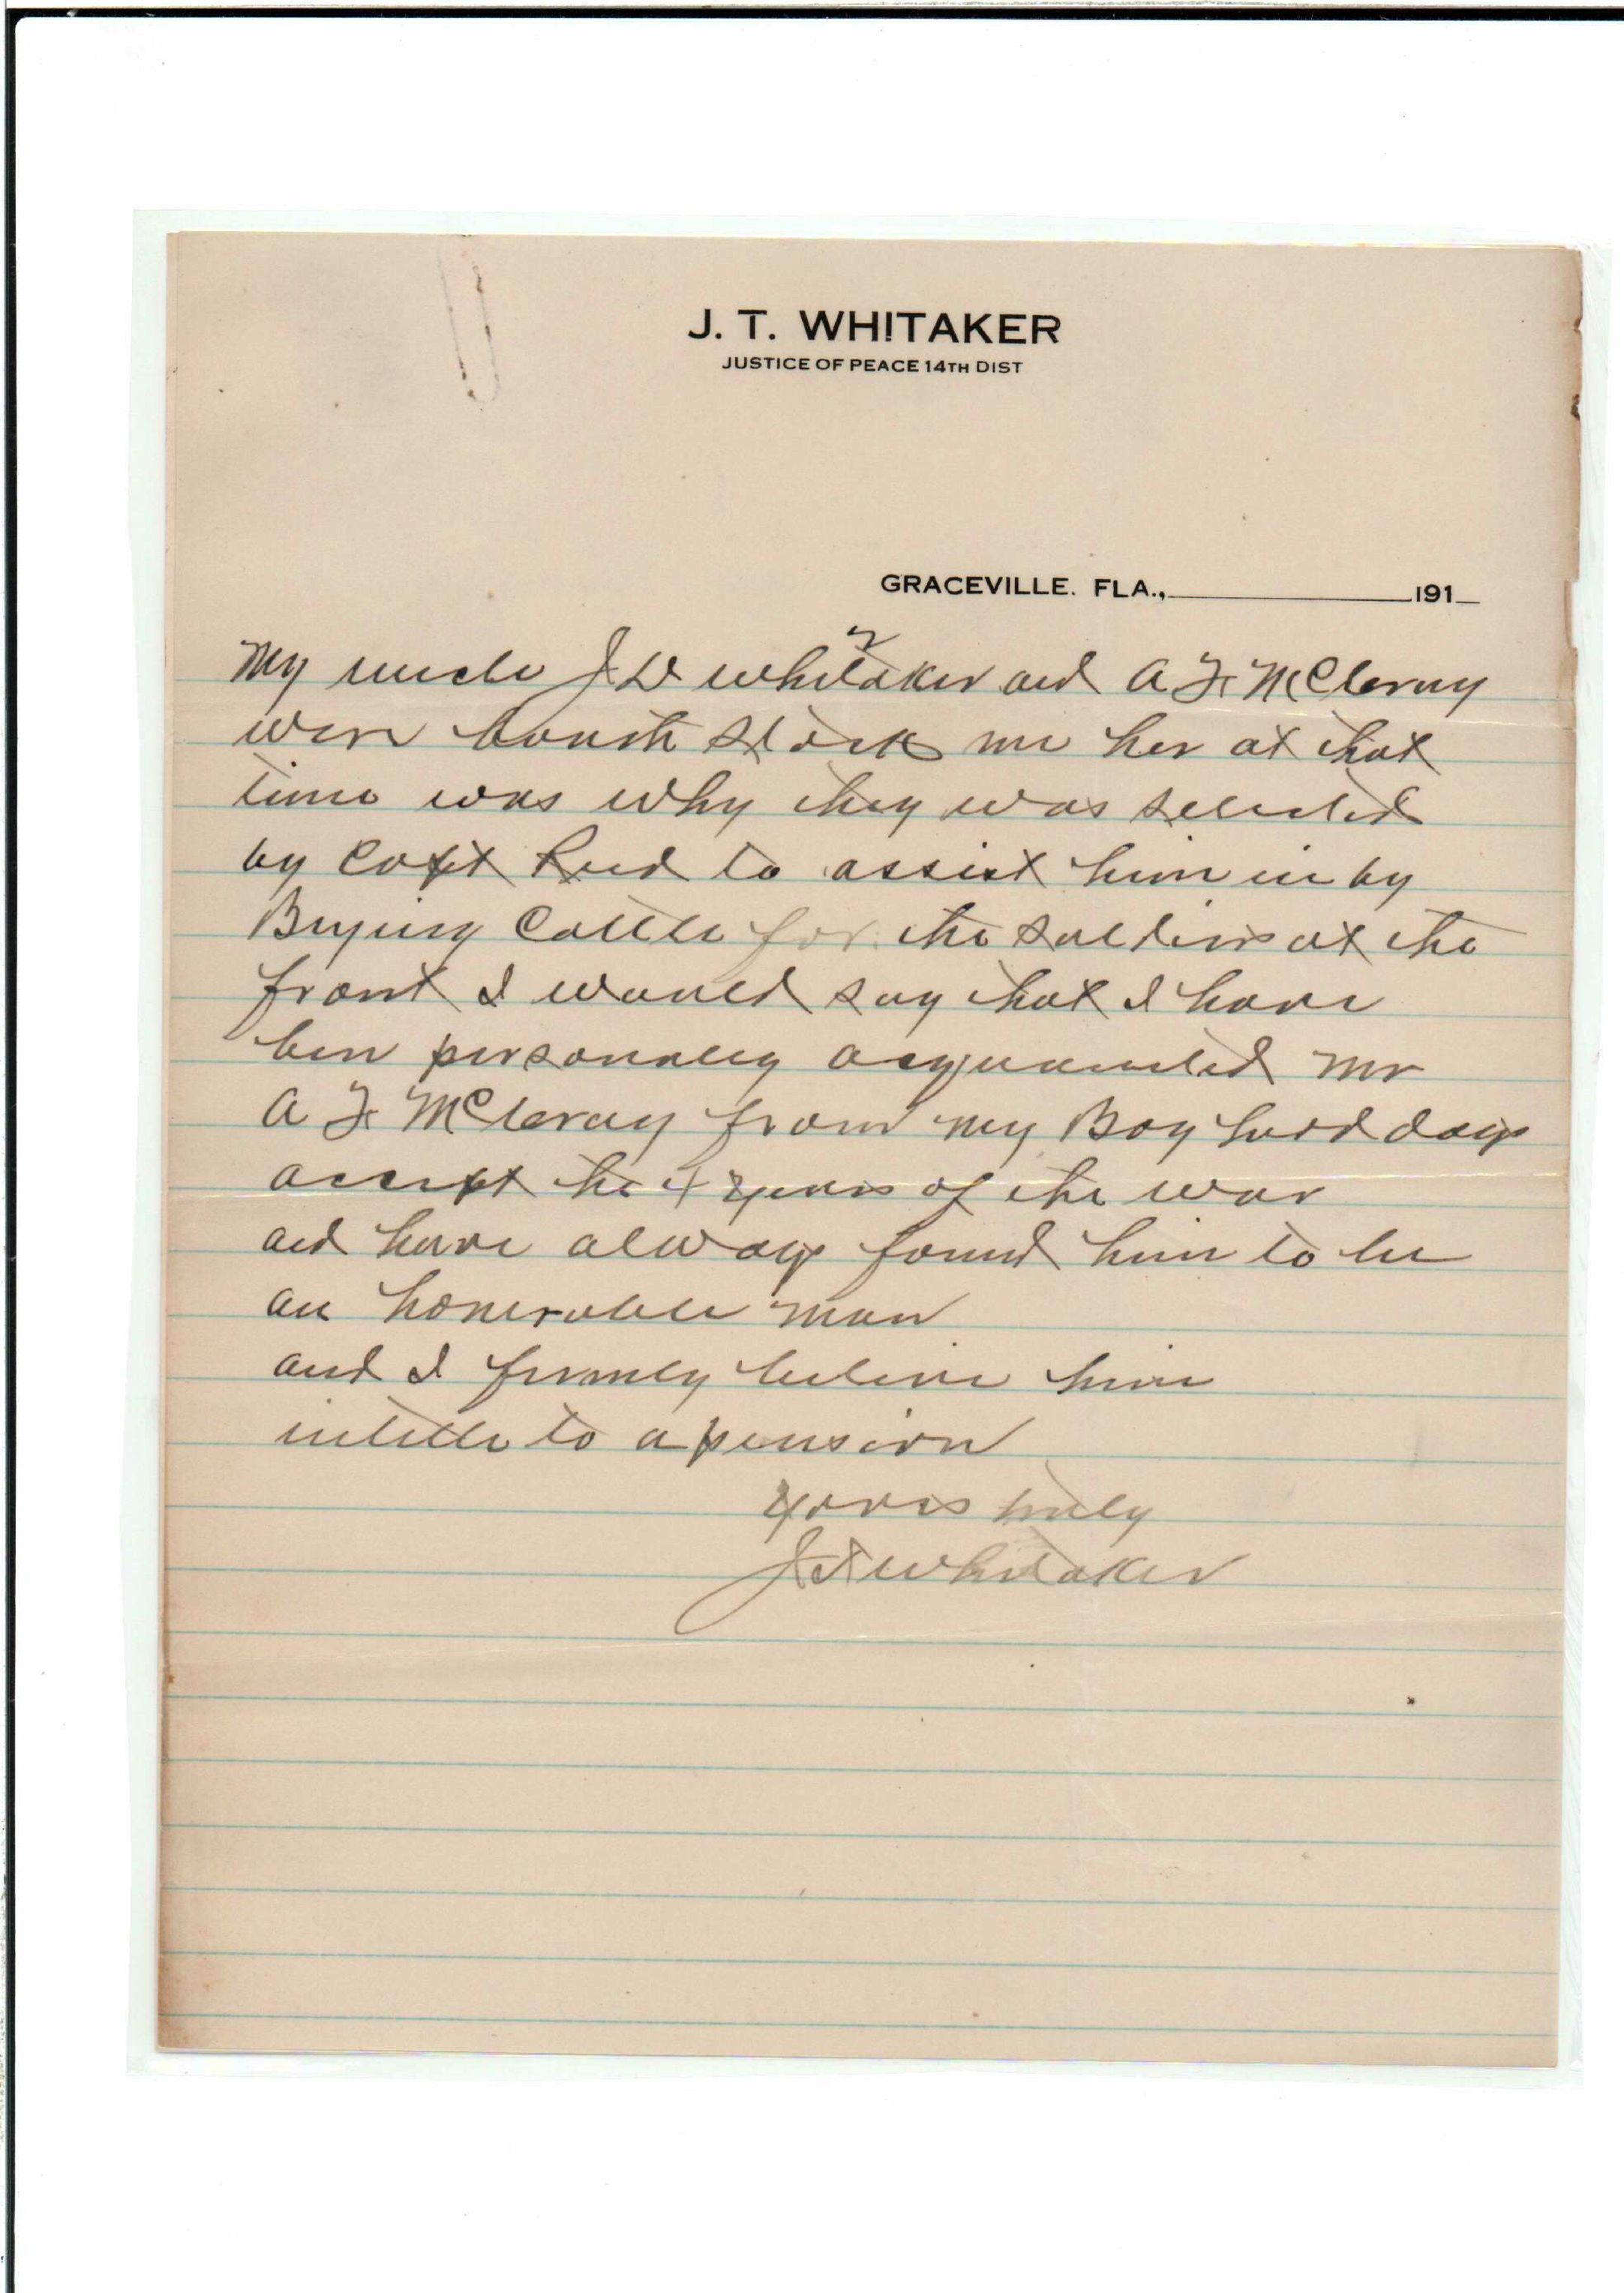 J. T. WHITAKER
JUSTICE OF PEACE 14TH DIST
GRACEVILLE. FLA., 191
2
My uncle J D Whitaker and A F McCleroy
were bouth Stock me her at that
time was why they was selected
by Capt Reed to assist him in by
Buying Cattle for the Soldiers at the
front I would say that I have
ben personaley acquainted Mr
A F McCleroy from my Boy hood days
accept the 4 years of the war
and have always found him to be
an honerable man
and I firmly believe him
intitle to a pension
Yours truly
J T Whitaker